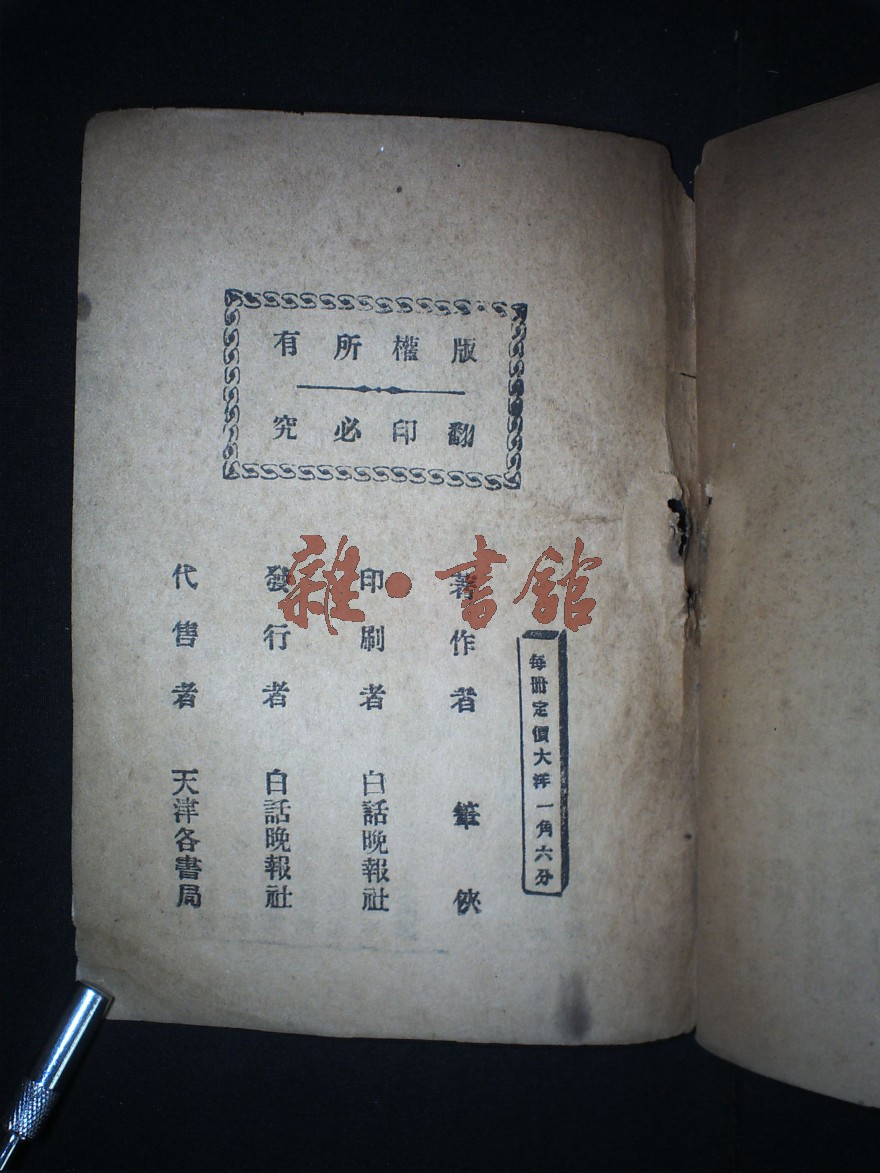 版權所有
翻印必究
每册定價大洋一角六分
著作者 筆俠
印刷者 白話晚報社
發行者 白話晚報社
代售者 天津各書局
雜·書館